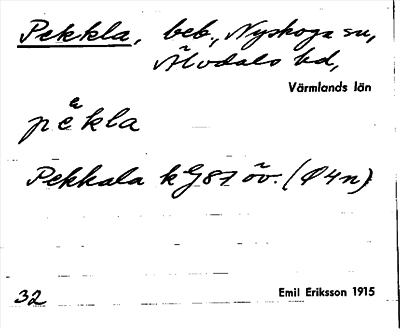 Pekkla, beb., Nyskoga sn,
Älvdals hd,
Värmlands län
pèkla
Pekkala kG87 öv. (Ø4n)
32
Emil Eriksson 1915